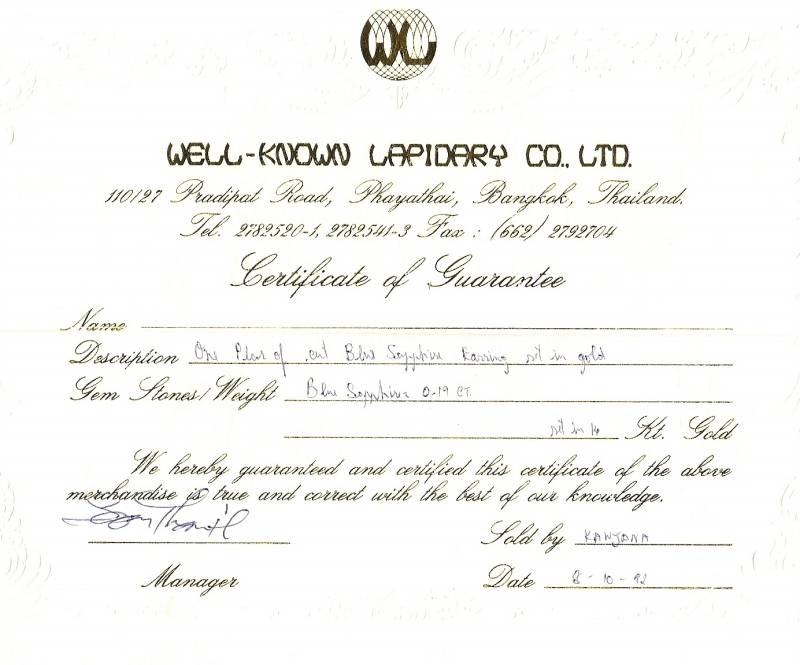 WL
WELL-KNOWN LAPIDARY CO., LTD.
110/27 Pradipat Road, Phayathai, Bangkok, Thailand.
Tel. 2782520-1, 2782541-3 Fax : (662) 2792704
Certificate of Guarantee
Name
Description One of cut Blue Sapphire Earring sit in gold
Gem Stones/Weight Blue Sapphire 0-19 CT.
sit in 14 Kt. Gold
We hereby guaranteed and certified this certificate of the above
merchandise is true and correct with the best of our knowledge.
Sold by KANJANA
Manager Date 8-10-92